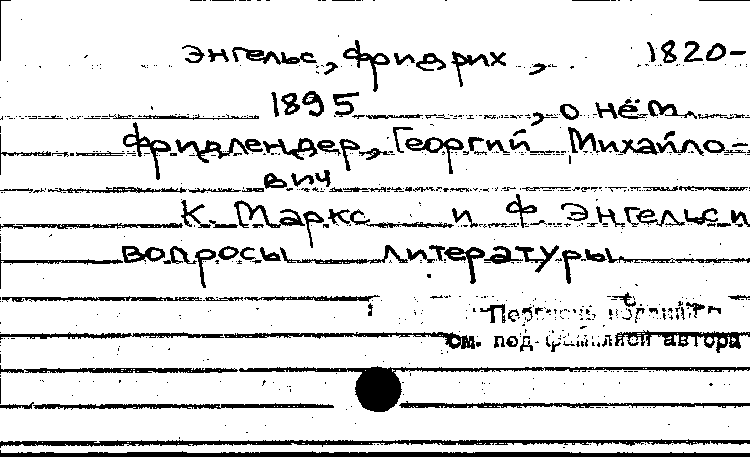 Энгельс, Фридрих, 1820-
1895 , о нём.
Фридлендер, Георгий Михайло-
вич
К. Маркс и Ф. Энгельс и
вопросы литературы.
Перечень изданий
см. под фамилией автора